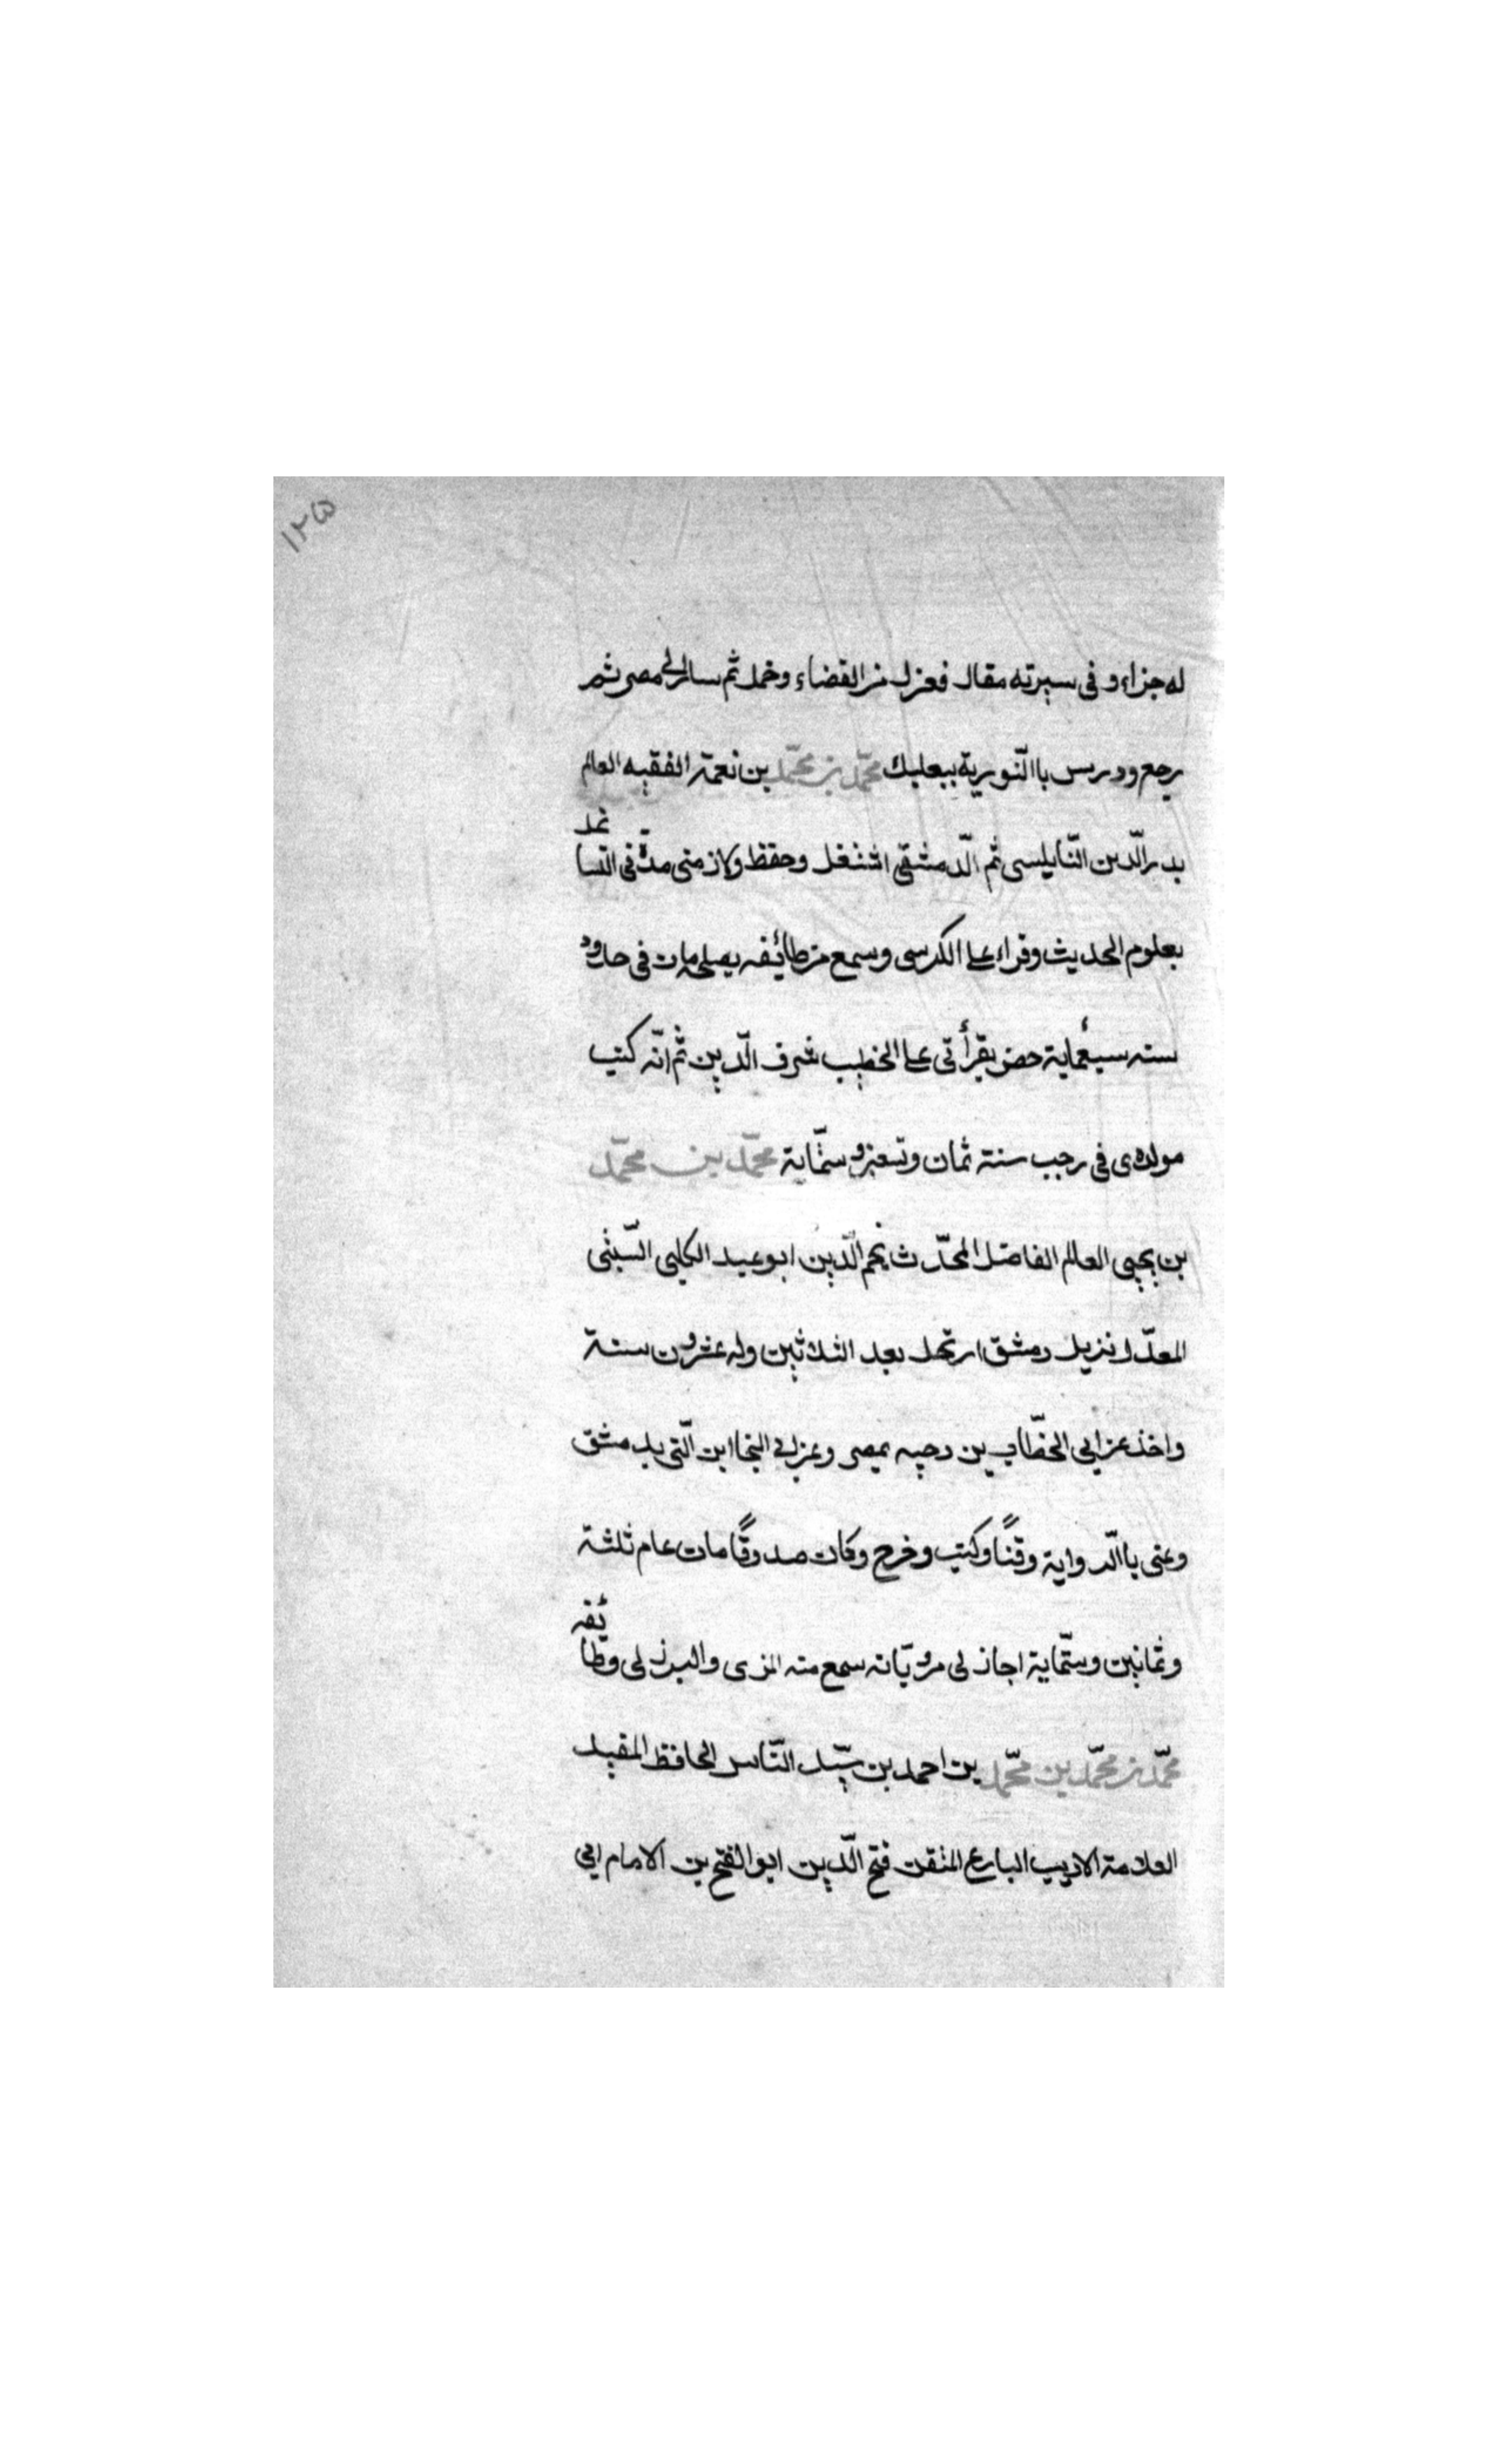 ١٢٥
له جزاء و فى سيرته مقال فعزل من القضاء وخمل ثم سار الى مصر ثم
رجع ودرس باالنّورية ببعلبك محمّد بن محمّد بن نعمة الفقيه العالم
بدر الّدين النّابلسى ثم الّدمشقى اشتغل وحفظ ولازمنى مدّة فى
بعلوم الحديث وقراء على الكرسى وسمع من طائفه مات فى حدود
سنه سبعمأية حضر بقرأتى على الخطيب شرف الّدين ثم انّه كتب
مولدى فى رجب سنة ثمان وتسعين وستّماية محمّد بن محمّد
بن يحيى العالم الفاضل المحدّث نجم الّدين ابو عبد الكلبى السّبتى
المعدّل نزيل دمشق ارتحل بعد الثلاثين وله عشرون سنة
واخذ عن ابى الخطّاب بن دحيه بمصر وعن ابى النجا ابن الّتى بدمشق
وعنى باالّرواية وقتًا وكتب وخرج وكان صدوقًا مات عام ثلثة
وثمانين وستّماية اجاز لى مرويّاته سمع منه المزى والبرزلى وطّائفه
محمّد بن محمّد بن محمّد بن احمد بن سيّد النّاس الحافظ المفيد
العلامة الاديب البارع المتقن فتح الّدين ابو الفتح بن الامام ابى